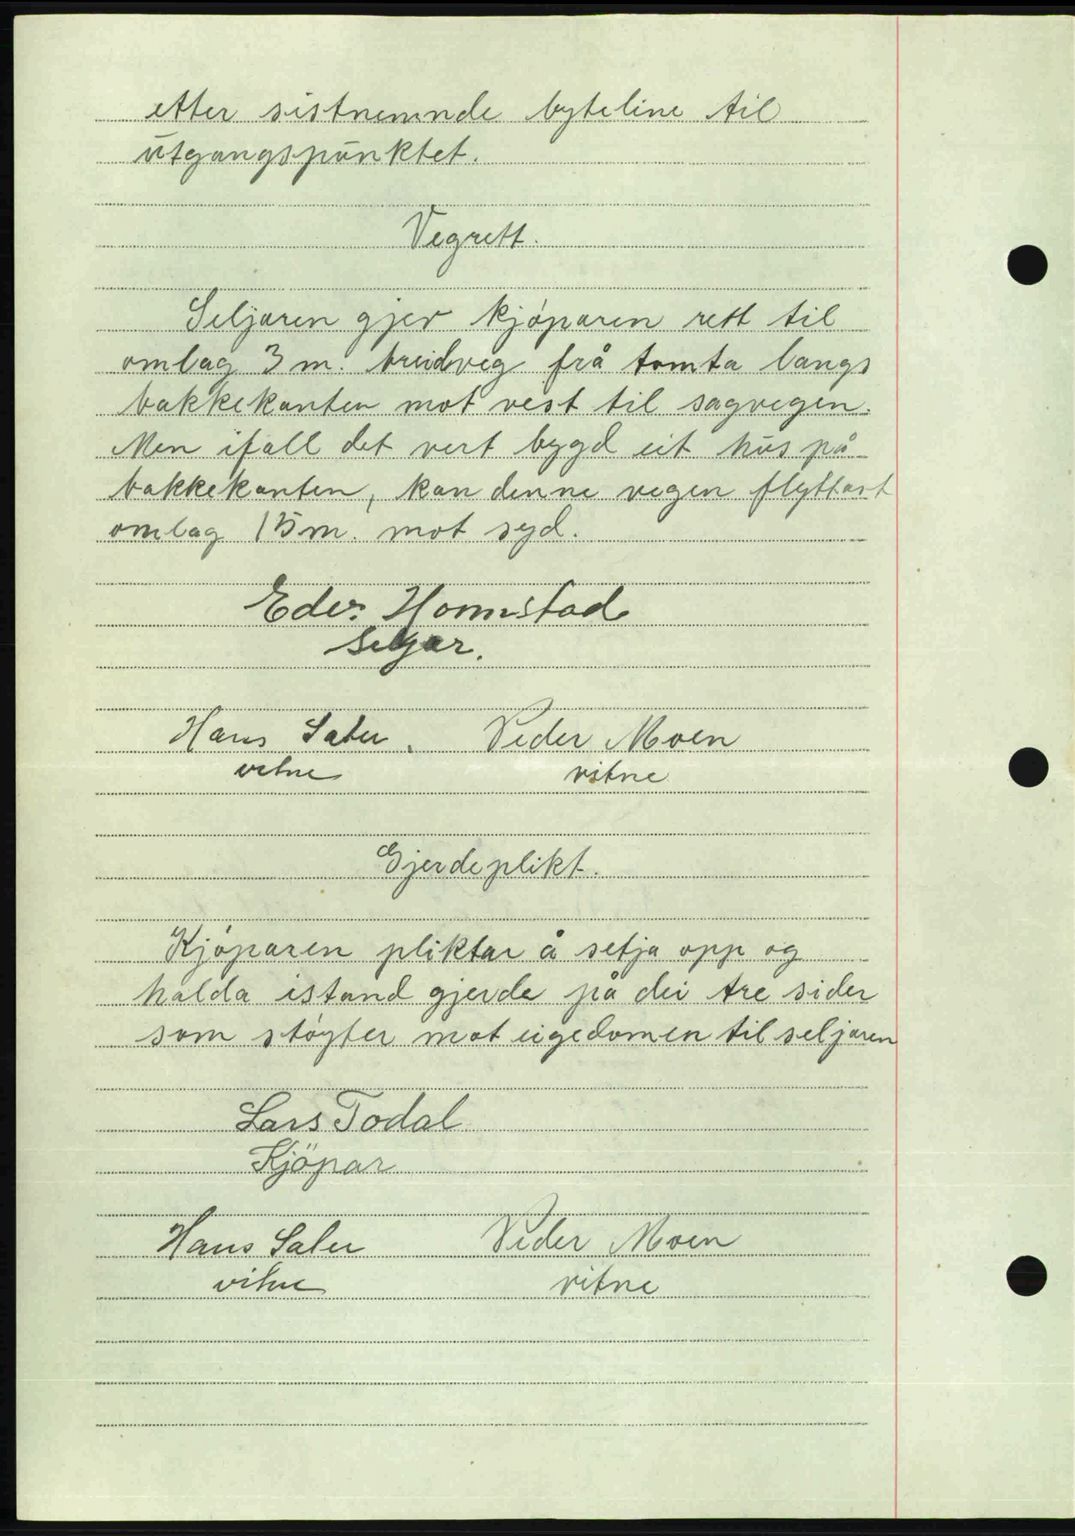 etter sistnemnde byteline til
utgangspunktet.
Vegrett.
Seljaren gjev kjóparen rett til
omlag 3 m. breidveg frå tomta langs
bakkekanten mot vest til sagvegen.
Men ifall det vert bygd eit hus på
bakkekanten, kan denne vegen flyttast
omlag 15 m. mot syd.
Homstad
Seljar.
Hans
Peder Moen
vitne
vitne
Gjerdeplikt.
Kjóparen pliktar å setja opp og
halda istand gjerde på dei tre sider
som stóyter mot eigedomen til seljaren
Lars Todal
Kjöpar
Hans
Peder Moen
vitne
vitne